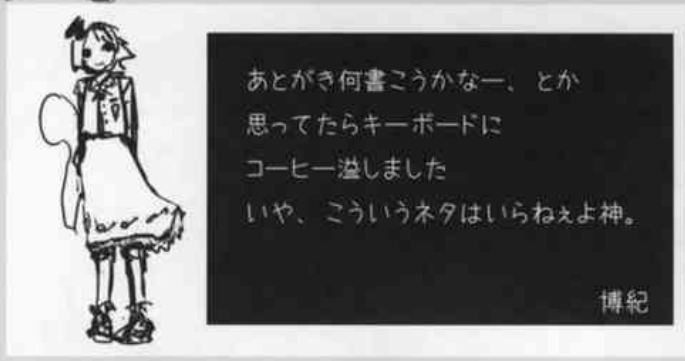 あとがき何書こうかなー、とか
思ってたらキーボードに
コーヒー溢しました
いや、こういうネタはいらねぇよ神。
博紀